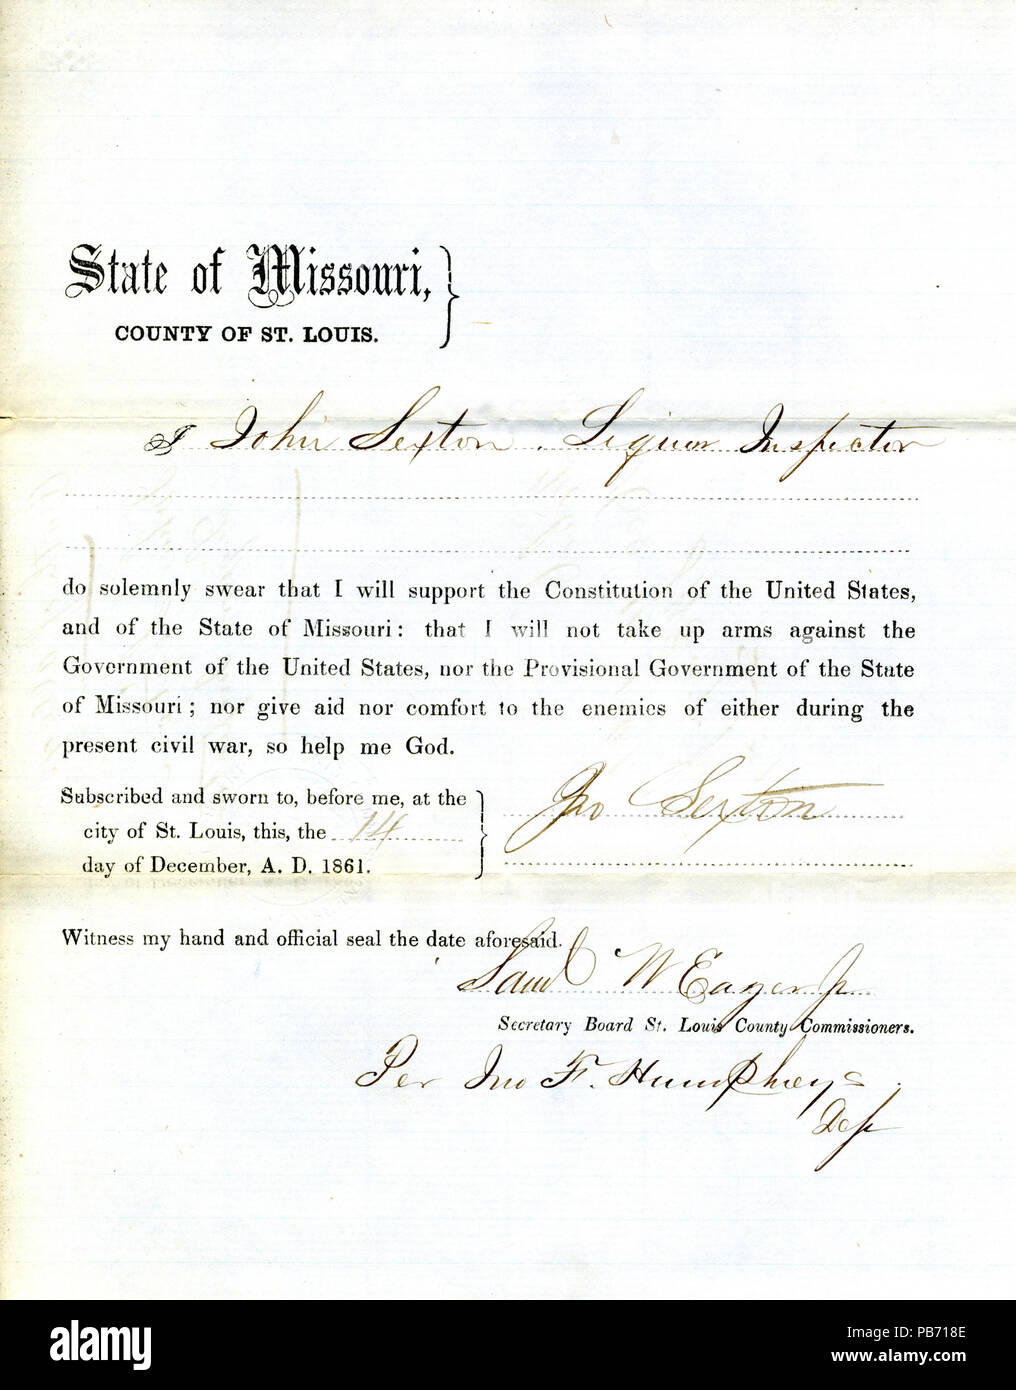 State of Missouri,
COUNTY OF ST. LOUIS.
I John Sexton, Liquor Inspector
do solemnly swear that I will support the Constitution of the United States,
and of the State of Missouri: that I will not take up arms against the
Government of the United States, nor the Provisional Government of the State
of Missouri; nor give aid nor comfort to the enemies of either during the
present civil war, so help me God.
Subscribed and sworn to, before me, at the
city of St. Louis, this, the 14
day of December, A. D. 1861.
Jno Sexton
Witness my hand and official seal the date aforesaid.
Saml W Eager jr
Secretary Board St. Louis County Commissioners.
Per Jno F. Humphreys.
Dep
alamy
Image ID: PB718E
www.alamy.com